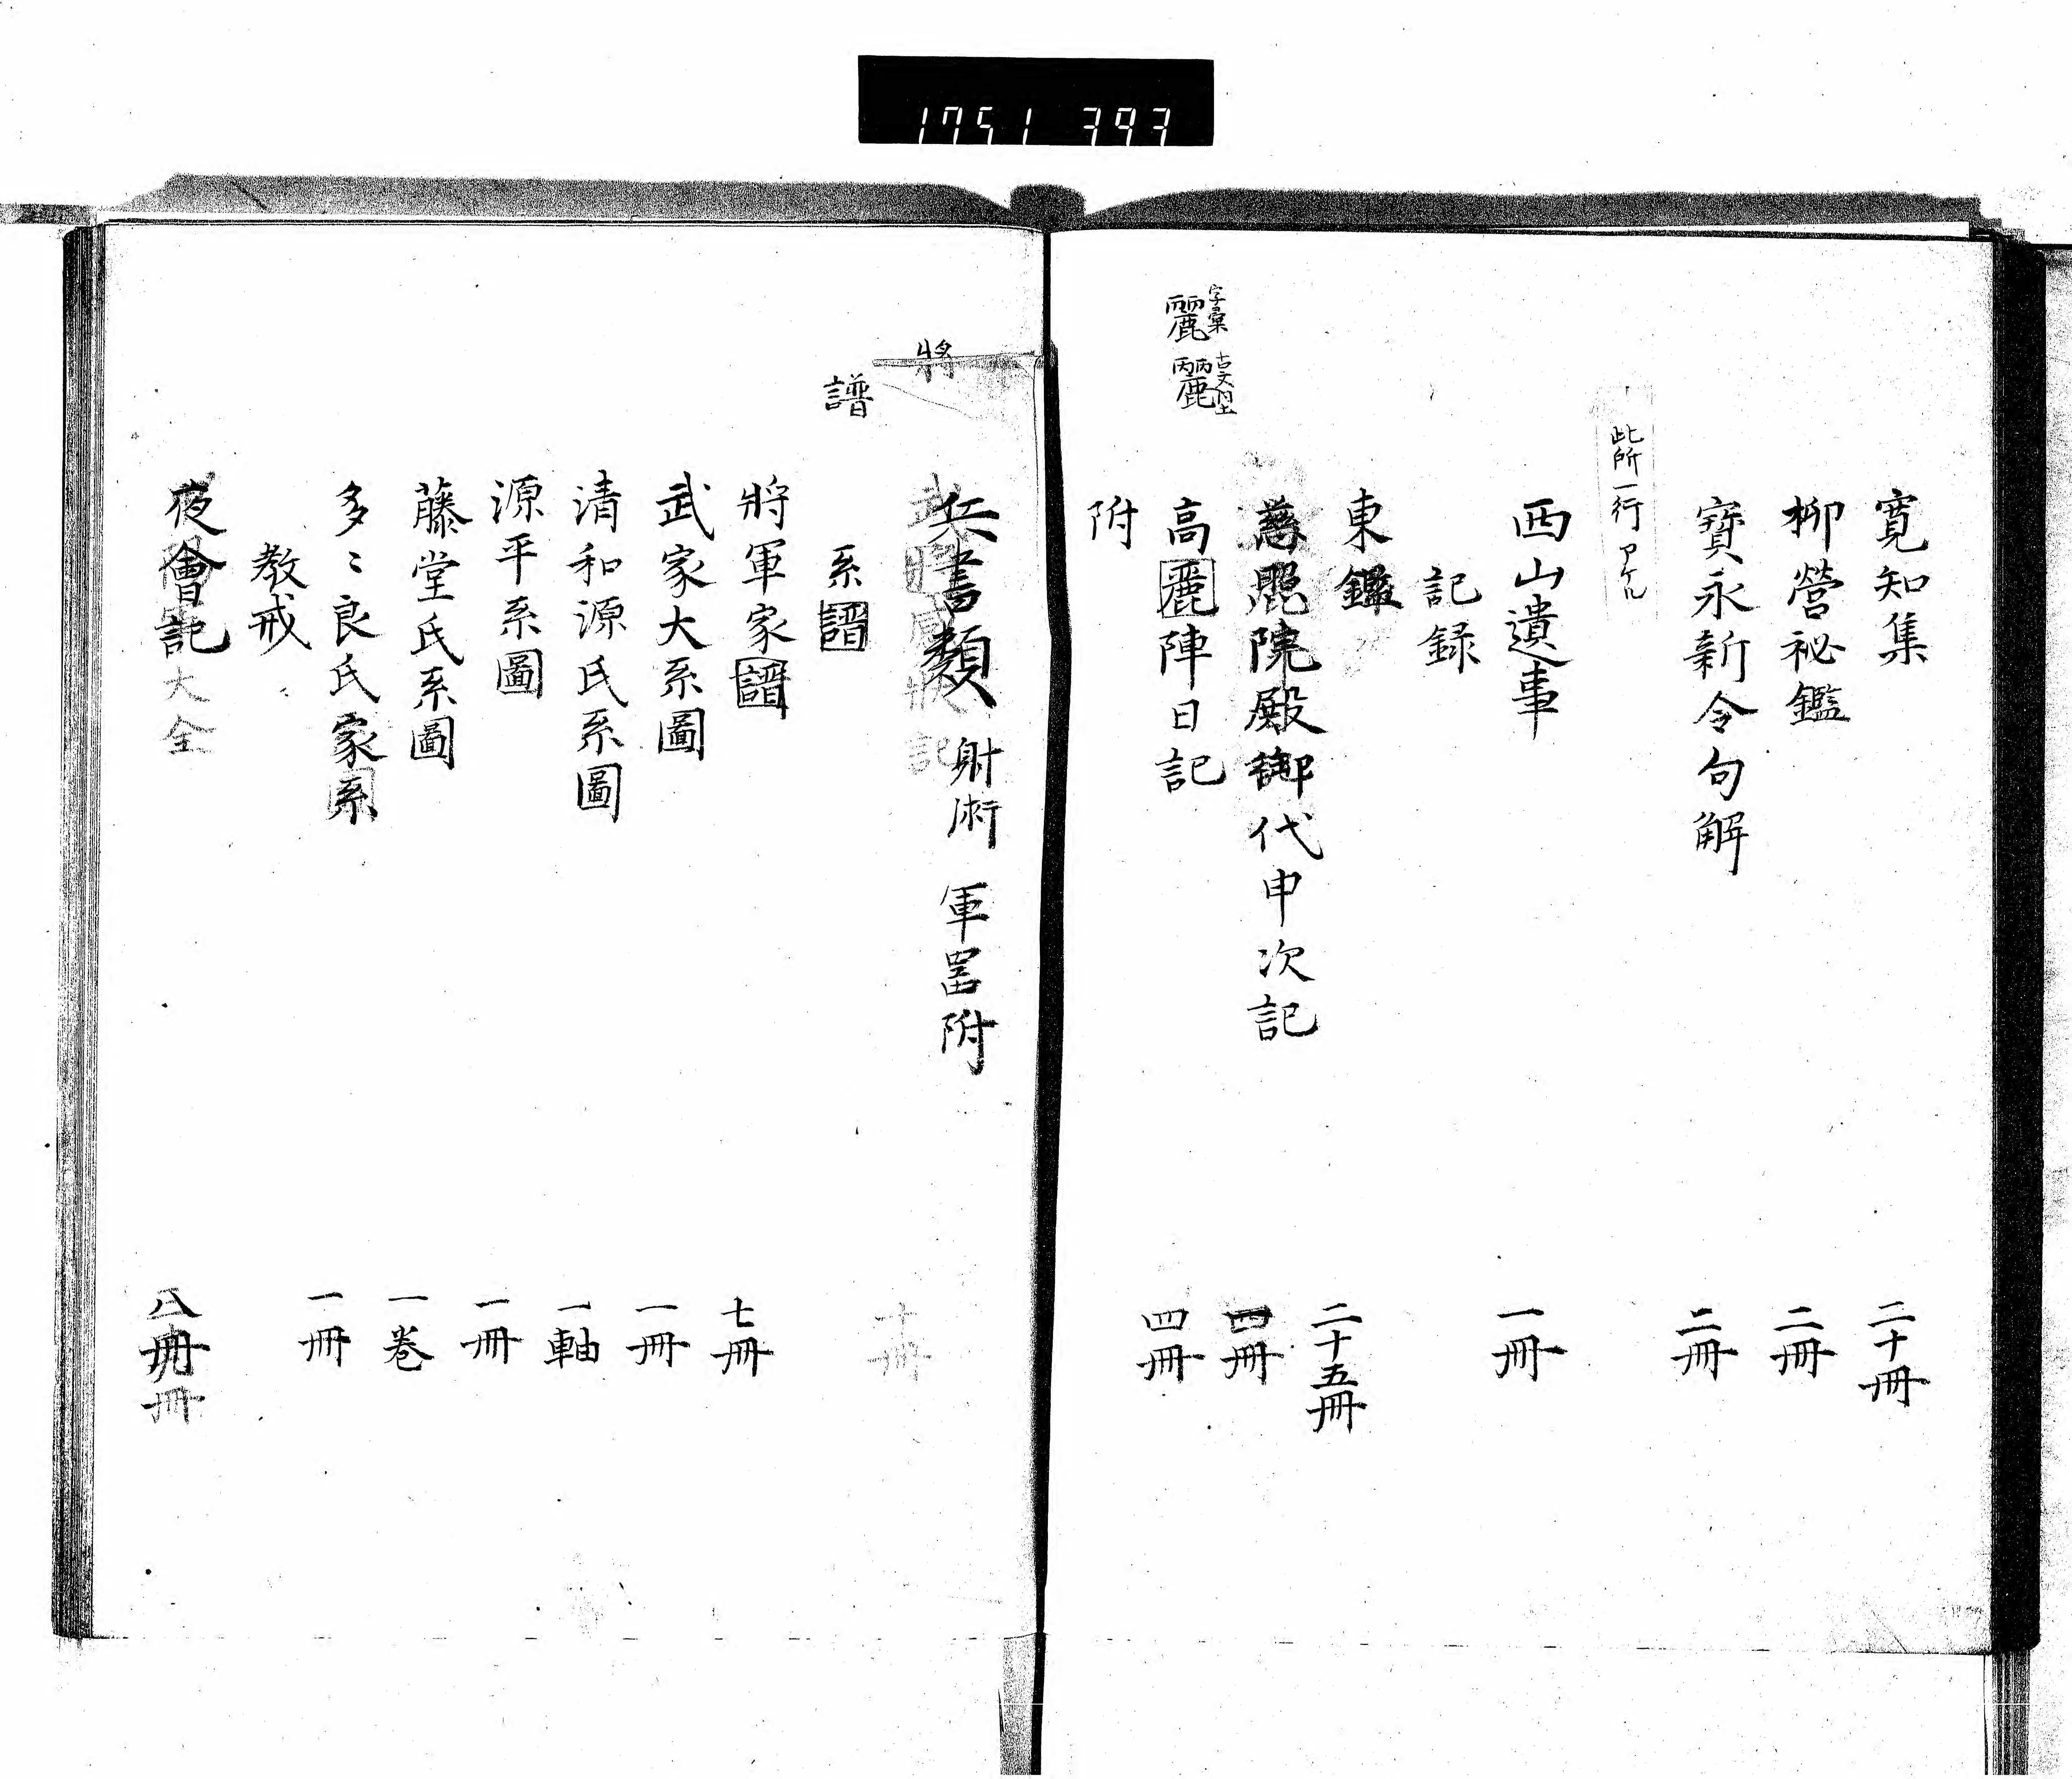 1751 393
寛知集 二十冊
柳營祕鑑 二冊
寶永新令句解 二冊
此所一行アケル
西山遺事 一冊
記録
東鑑 二十五冊
慈照院殿御代申次記 四冊
字彙
麗
古文
高麗陣日記 四冊
附
將
兵書類 射術 軍器附
十冊
譜
系譜
將軍家譜 七冊
武家大系圖 一冊
清和源氏系圖 一軸
源平系圖 一冊
藤堂氏系圖 一巻
多〻良氏家系 一冊
教戒
夜會記 八冊
大全
冊